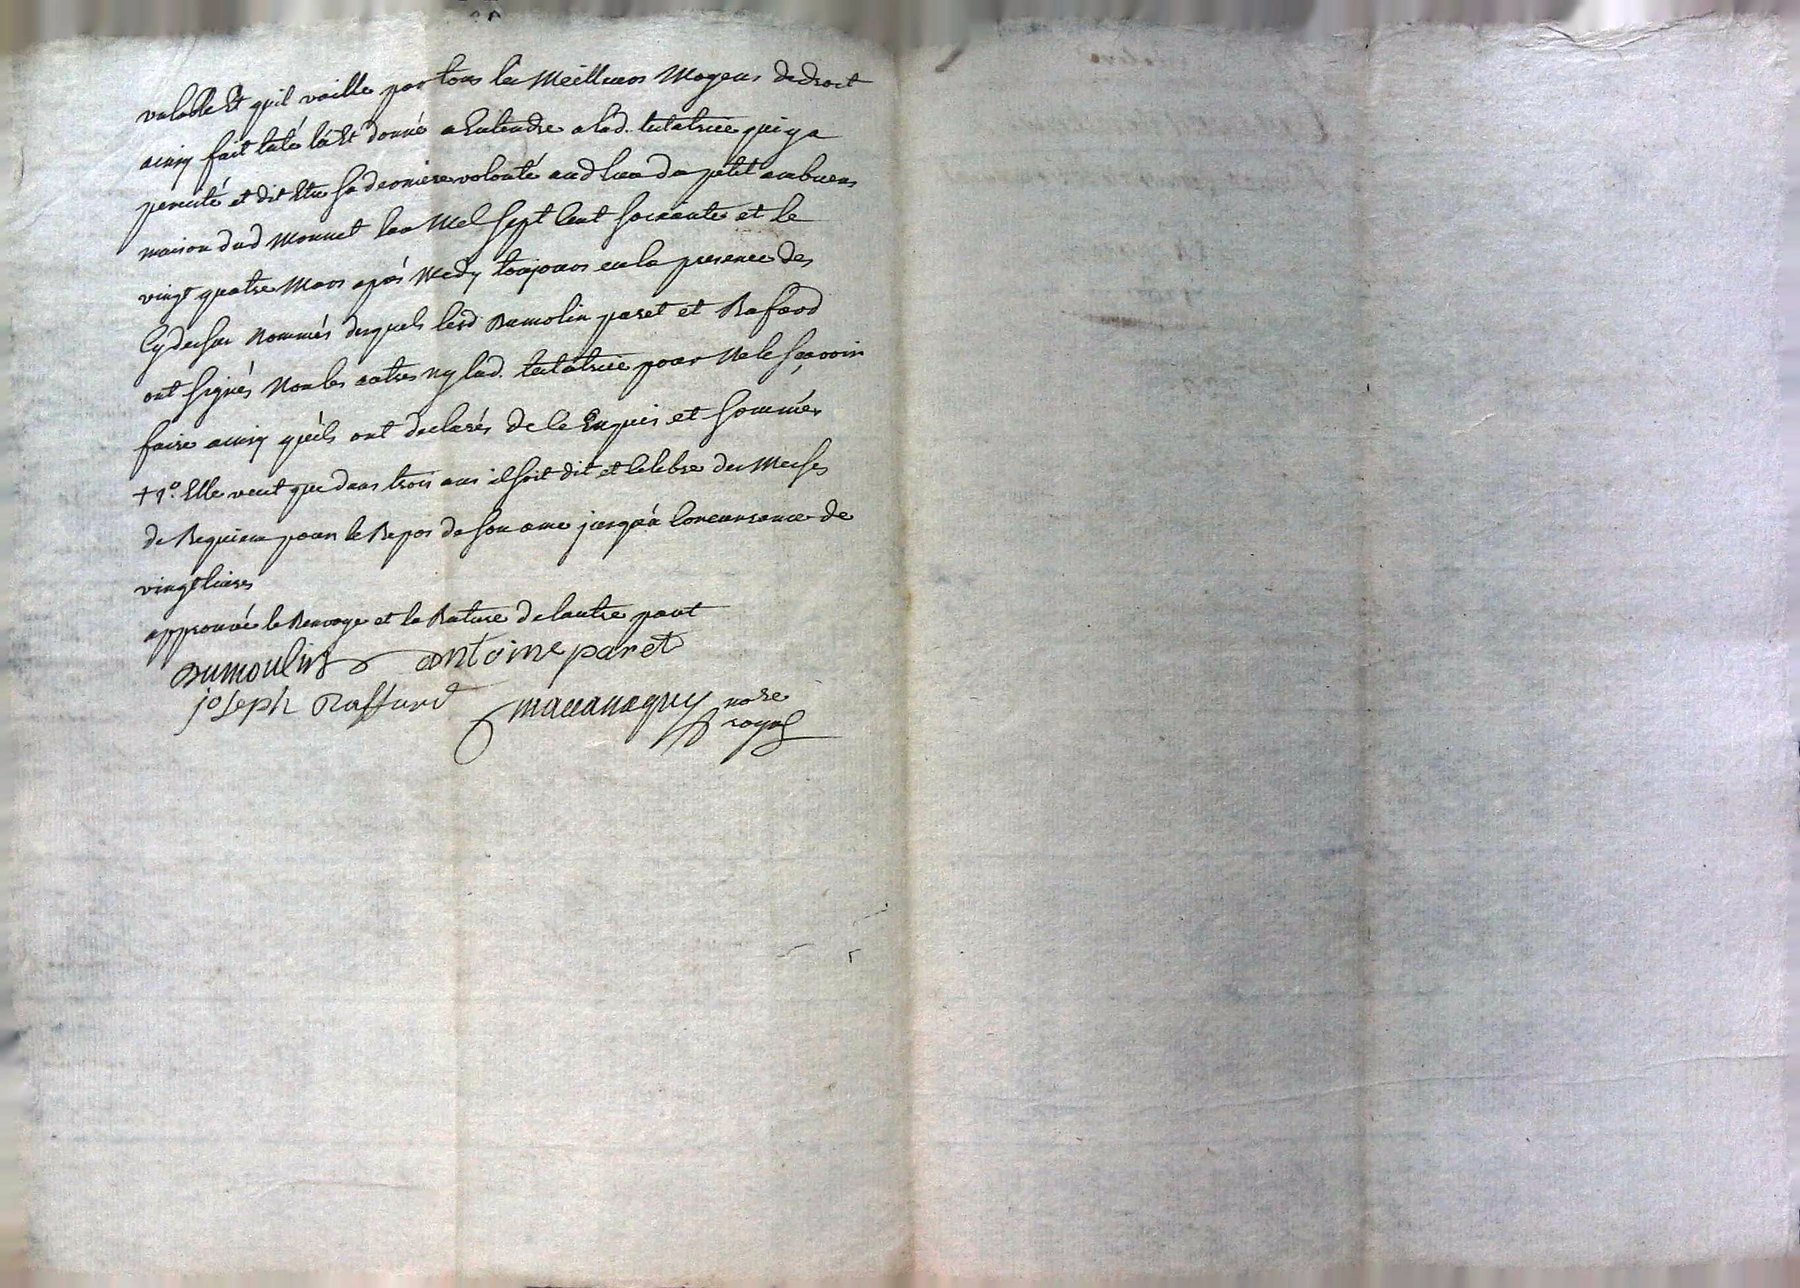 valable et quil vaille par tous les Meilleurs Moyens dedroit
ainsy fait leu là et donné a Entendre a lad. testatrice qui y a
percisté et dit Etre sa derniere volonté aud lieu du petit
maison dud Monnet lan Mil sept Cent soixante et le
vingt quatre Mars après Midy toujours en la presence des
Cydessus Nommés desquels lesd Dumolin paret et Rafard
ont signés Non les autres ny lad. testatrice pour Ne le sçavoir
faire ainsy quils ont declarés de ce Enquis et sommés
+ 1º. Elle veut que dans trois ans il soit dit et Celebre des Messes
de Requiem pour le Repos de son ame jusquà Concurrance de
vingt livres
approuvé le Renvoye et la Rature de lautre part
Dumoulin antoine paret
joseph Raffard nore
royal